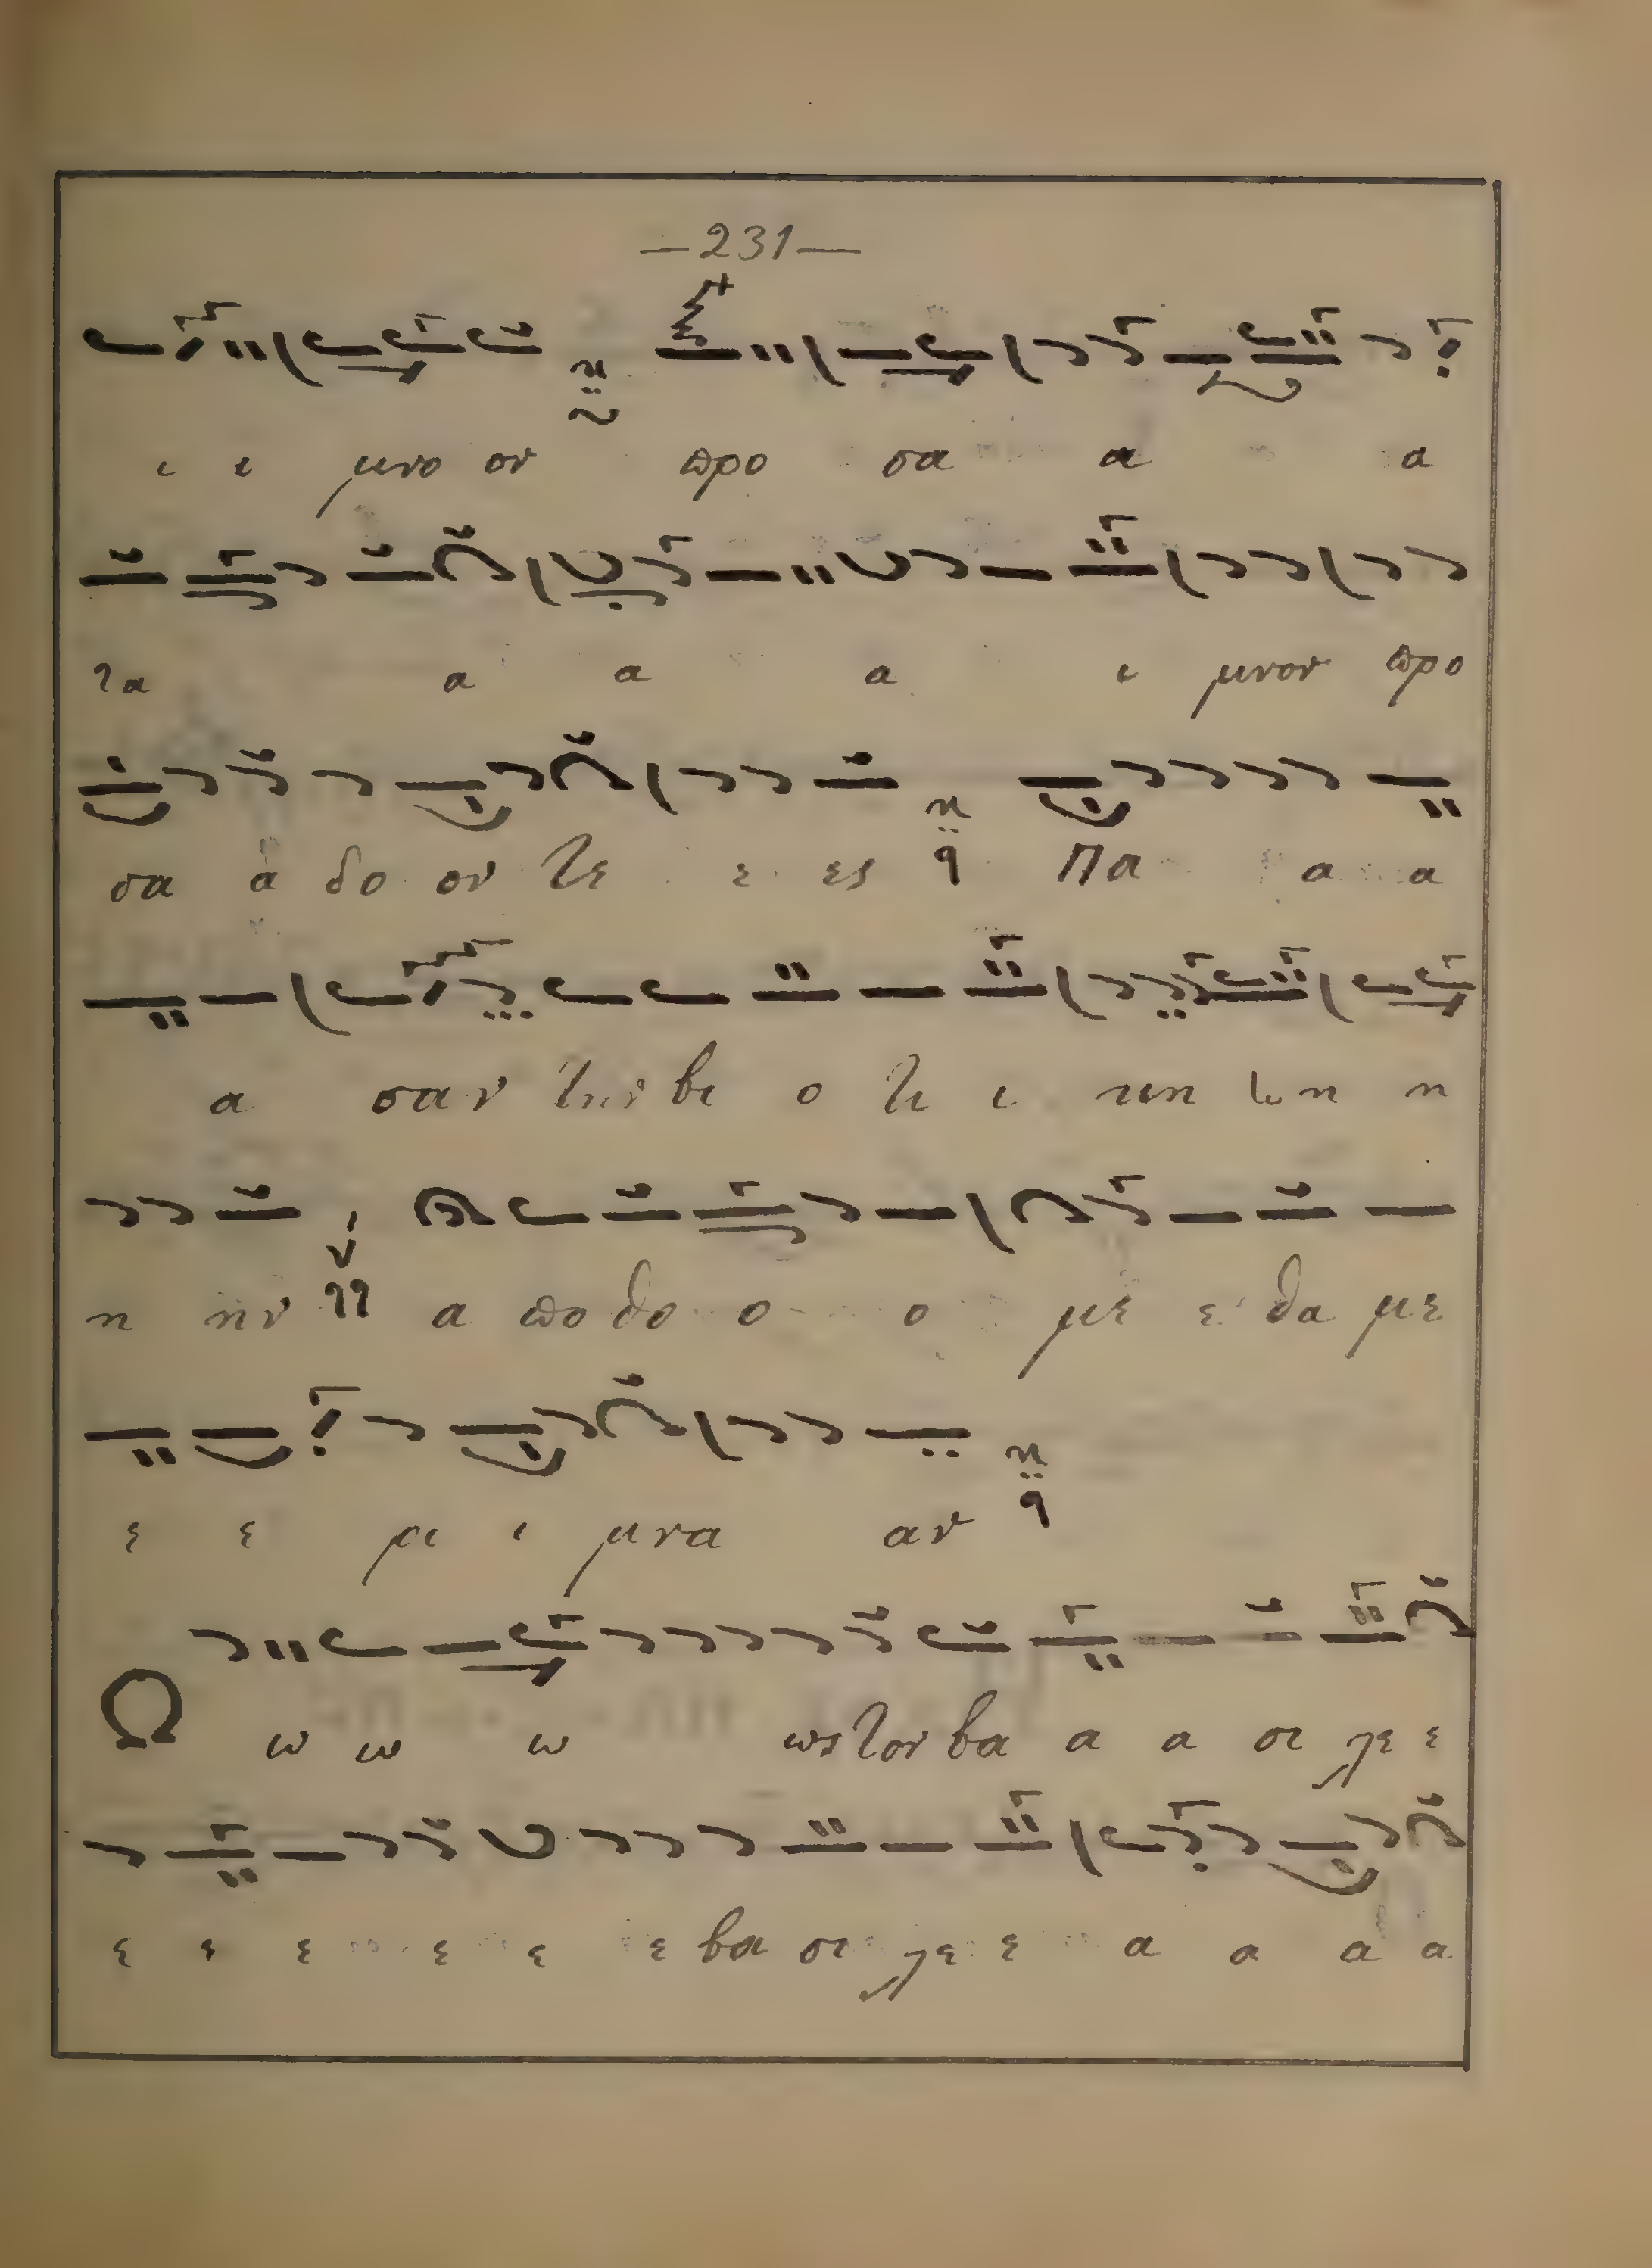 —231—
ι ι μνο ον προ σα α α
τα α α α ι μνον προ
σα α δο ον τε ε ες Πα α α
α σαν την βι ο τι ι κην η η
η κην α πο θο ο ο με ε θα με
ε ε ρι ι μνα αν
Ω ω ω ω ως τον βα α α σι λε ε
ε ε ε ε ε ε βα σι λε ε α α α α